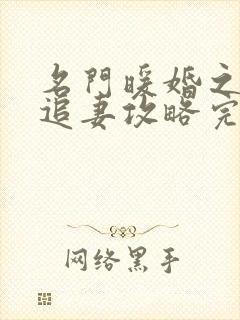 名門暖婚之
追妻攻略完
网络黑手